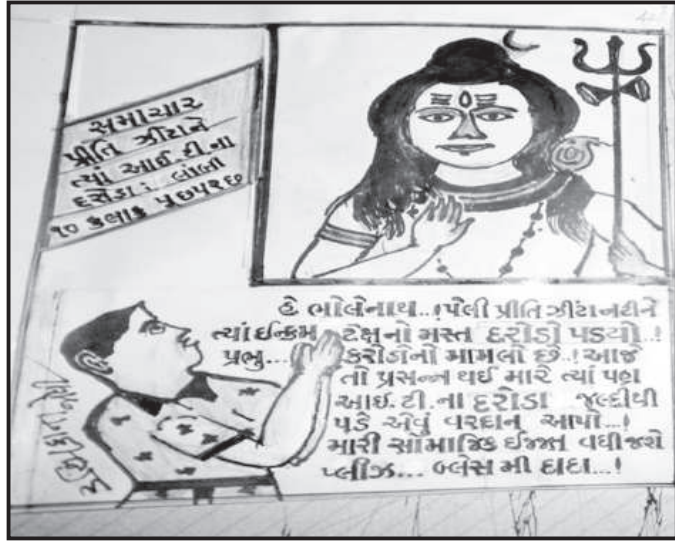 સમાચાર
પ્રીતિ ઝીંટાને
ત્યાં આઈ.ટી.ના
દરોડા: લાંબી
૧૦ કલાક પૂછપરછ
હે ભોલેનાથ..! પેલી પ્રીતિ ઝીંટા નટીને
ત્યાં ઈન્કમ ટેક્ષનો મસ્ત દરોડો પડયો..!
પ્રભુ... કરોડોનો મામલો છે..! આજે
તો પ્રસન્ન થઈ મારે ત્યાં પણ
આઈ.ટી.ના દરોડા જલ્દીથી
પડે એવું વરદાન આપો...!
મારી સામાજિક ઈજ્જત વધી જશે
પ્લીઝ... બ્લેસ મી દાદા...!